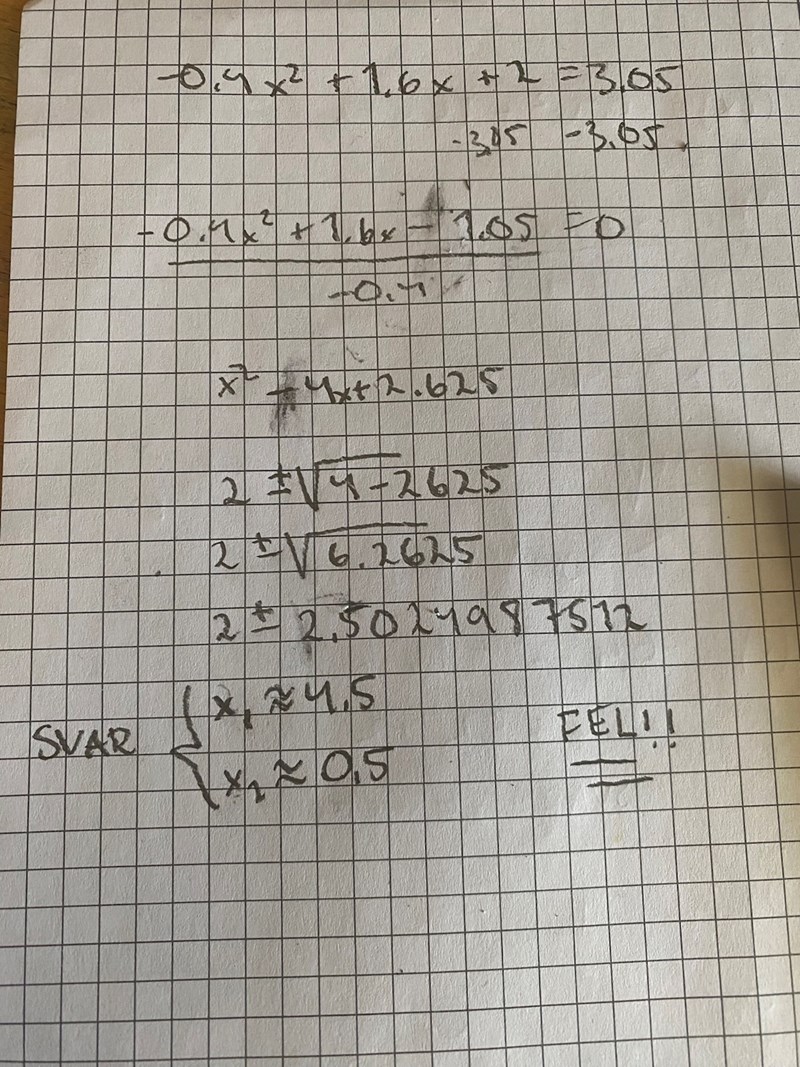 -0.4x² + 1.6x + 2 = 3.05
-3.05 -3.05
-0.4x² + 1.6x - 1.05 = 0
-0.4
x² - 4x + 2.625
2 ± √4-2625
2 ± √6.2625
2 ± 2.5024987512
SVAR { x₁ ≈ 4,5
x₂ ≈ 0,5
FEL!!